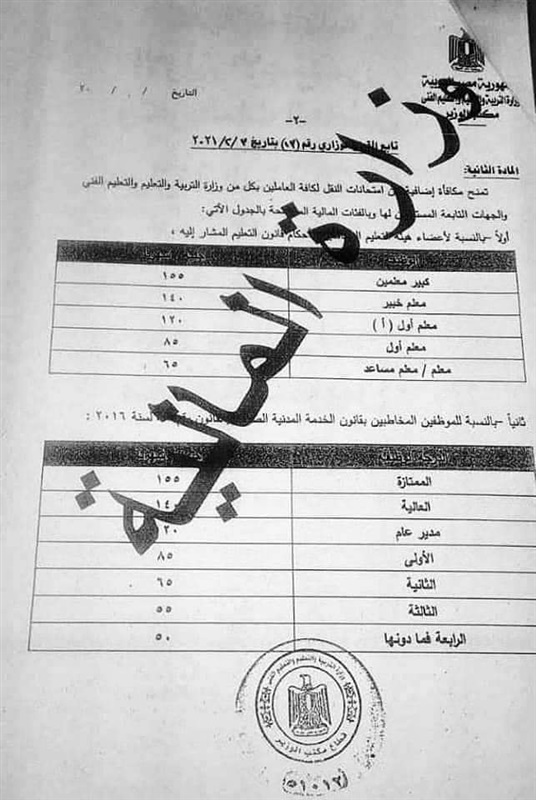 جمهورية مصر العربية
وزارة التربية والتعليم الفنى
مكتب الوزير
التاريخ / / ٢٠
-٢-
تابع القرار الوزاري رقم (١٧) بتاريخ ٢٠٢١/٢/٧
المادة الثانية:
تمنح مكافأة إضافية عن امتحانات النقل لكافة العاملين بكل من وزارة التربية والتعليم والتعليم الفنى
والجهات التابعة لها وبالفئات المالية بالجدول الآتي:
أولاً -بالنسبة لأعضاء هيئة التعليم أحكام قانون التعليم المشار إليه ،
كبير معلمين ١٥٥
معلم خبير ١٤٠
معلم أول ( أ ) ١٢٠
معلم أول ٨٥
معلم / معلم مساعد ٦٥
ثانياً -بالنسبة للموظفين المخاطبين بقانون الخدمة المدنية لسنة ٢٠١٦ :
الممتازة ١٥٥
العالية
مدير عام
الأولى ٨٥
الثانية ٦٥
الثالثة ٥٥
الرابعة فما دونها ٥٠
وزارة المالية
وزارة التربية والتعليم والتعليم الفنى
قطاع مكتب الوزير